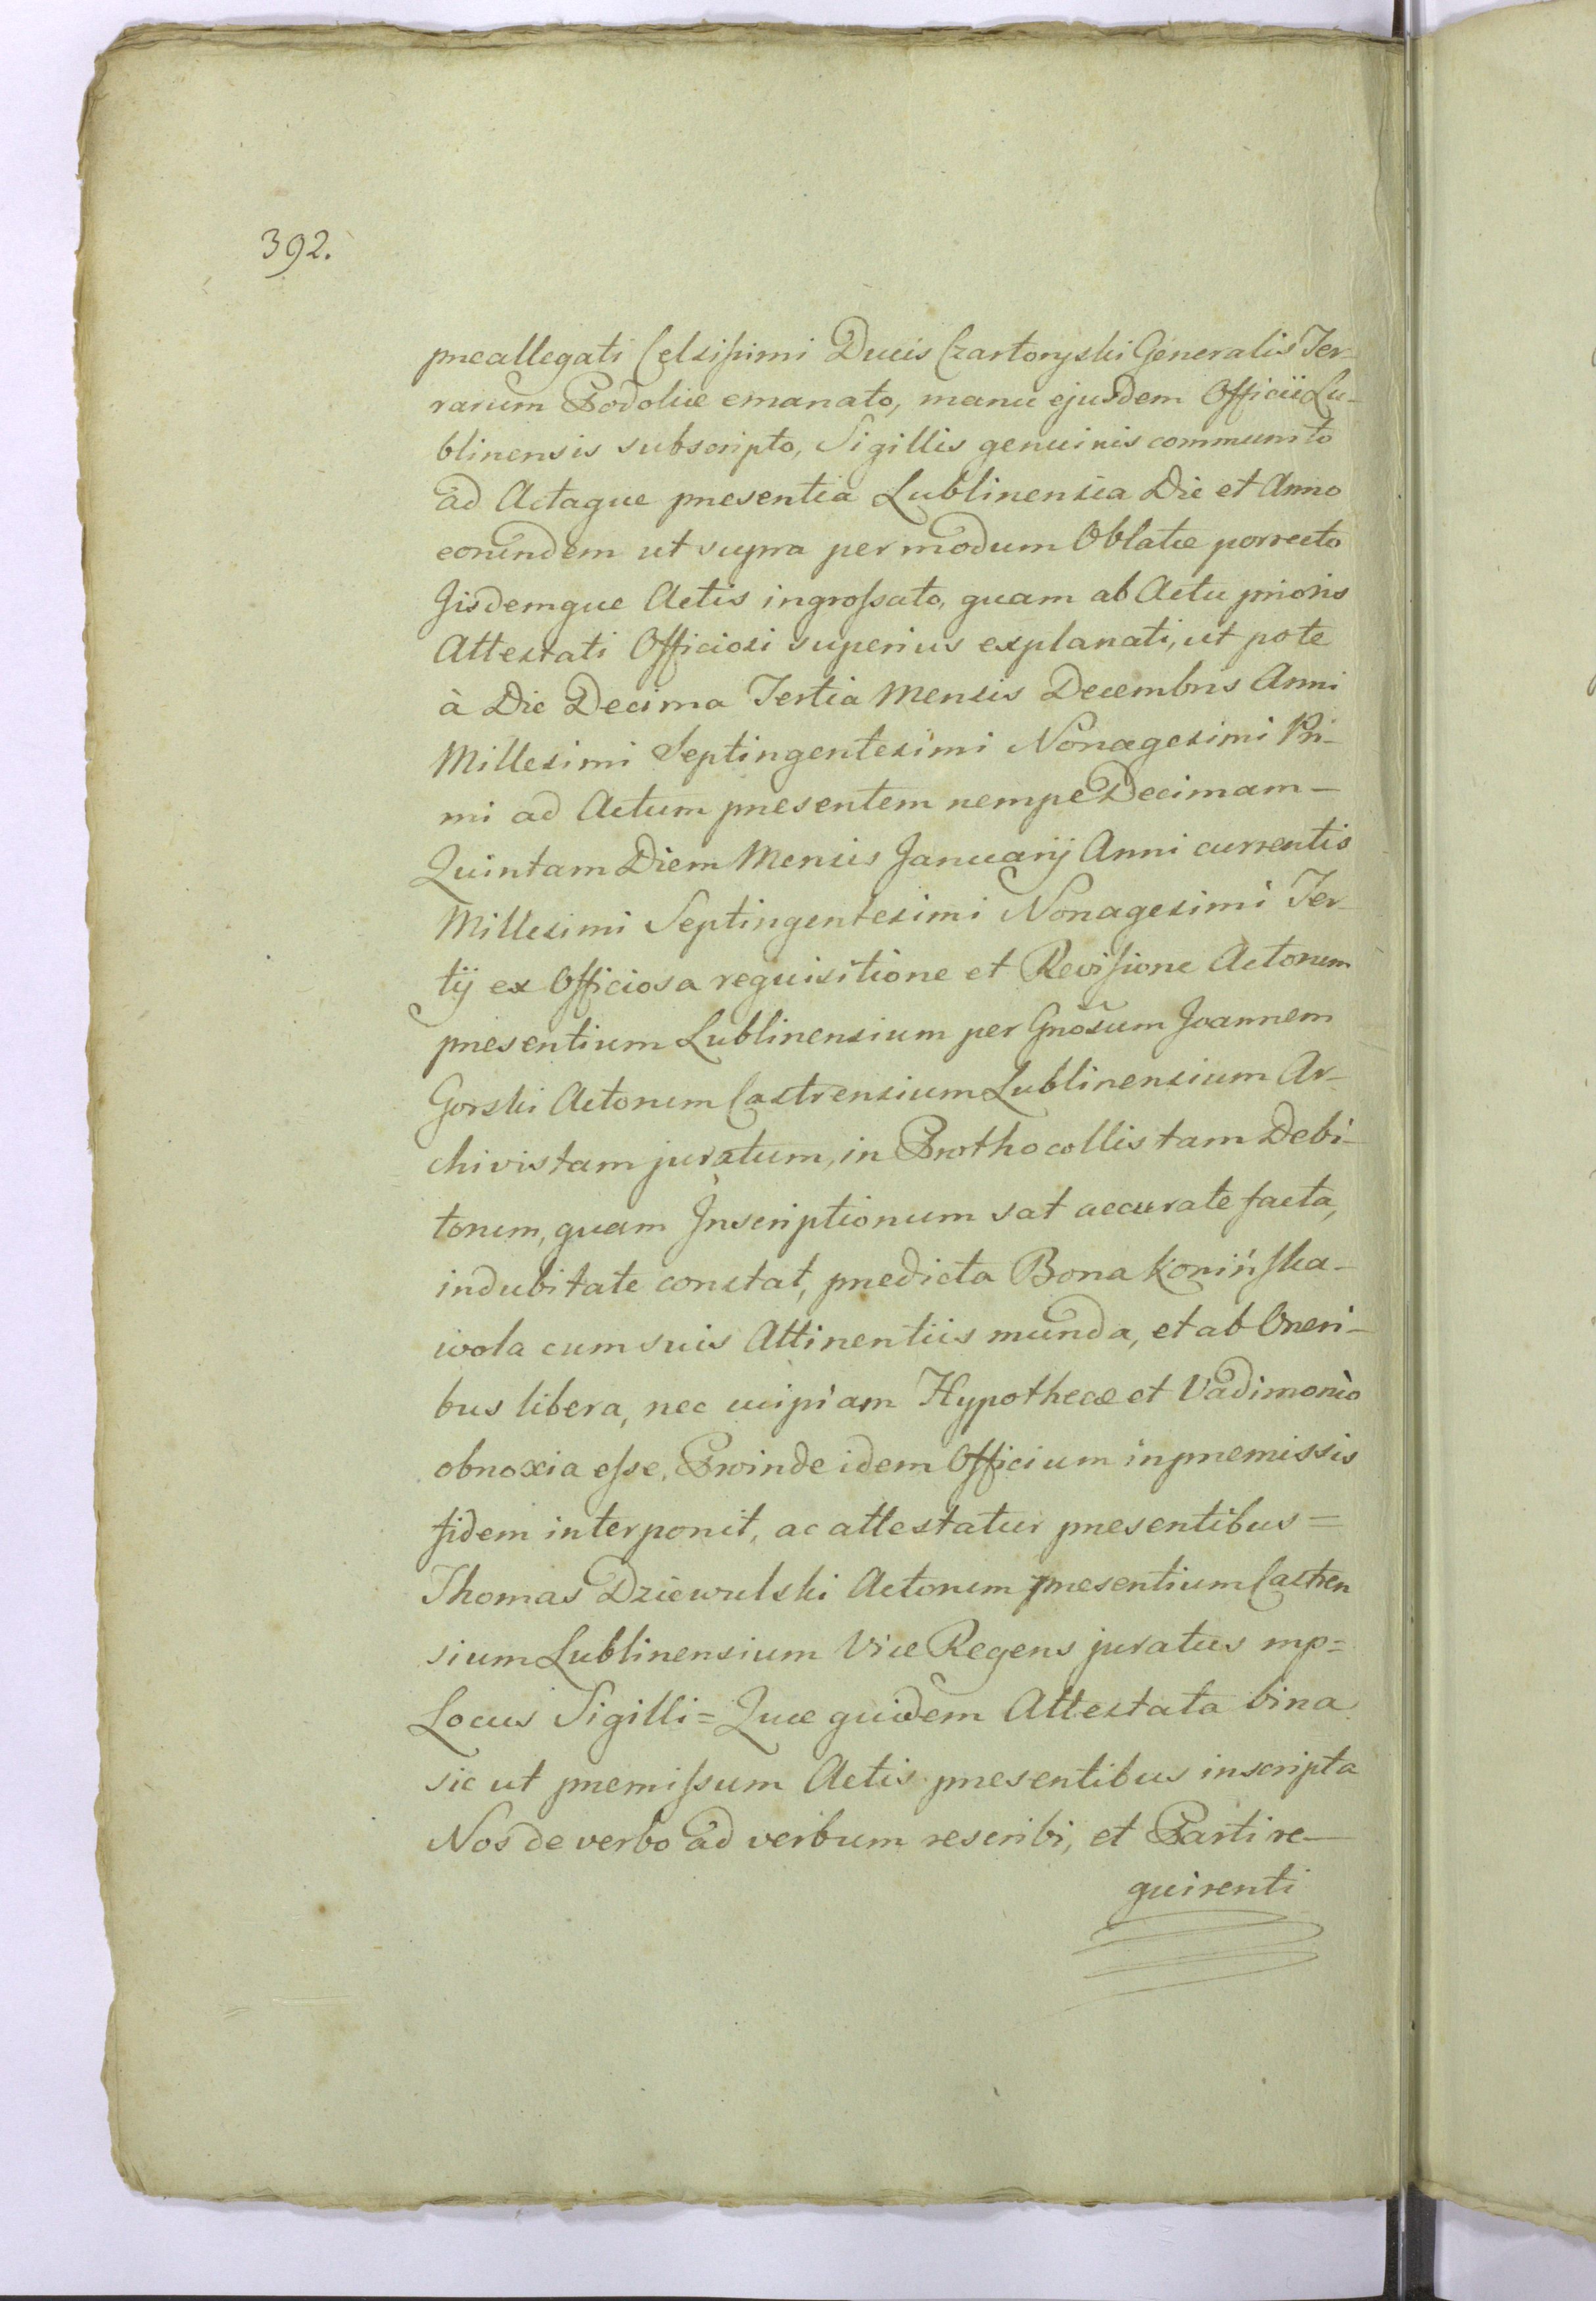 392.
preallegati Celsissimi Ducis Czartoryski Generalis Ter-
rarum Podoliæ emanato, manu ejusdem Officii Lu-
blinensis subscripto, Sigillis genuinis communito
ad Actaque presentia Lublinensia Die et Anno
eorundem ut supra per modum Oblatæ porrecto
Jisdemque Actis ingrossato, quam ab Actu prioris
Attestati Officiosi superius explanati, ut pote
à Die Decima Tertia Mensis Decembris Anni
Millesimi Septingentesimi Nonagesimi Pri-
mi ad Actum presentem nempe Decimam-
Quintam Diem Mensis Januarij Anni currentis
Millesimi Septingentesimi Nonagesimi Ter-
tij ex Officiosa requisitione et Revisione Actorum
presentium Lublinensium per Gnosum Joannem
Gorski Actorum Castrensium Lublinensium Ar-
chivistam juratum, in Prothocollis tam Debi-
torum, quam Inscriptionum sat accurate facta,
indubitate constat, predicta Bona Konińska-
wola cum suis Attinentiis munda, et ab Oneri-
bus libera, nec cuipiam Hypothecæ et Vadimonio
obnoxia esse, Proinde idem Officium in premissis
fidem interponit, ac attestatur presentibus =
Thomas Dziewulski Actorum presentium Castren
sium Lublinensium Vice Regens juratus mp=
Locus Sigilli = Quæ quidem Attestata bina
sic ut premissum Actis presentibus inscripta
Nos de verbo ad verbum rescribi, et Parti re-
quirenti